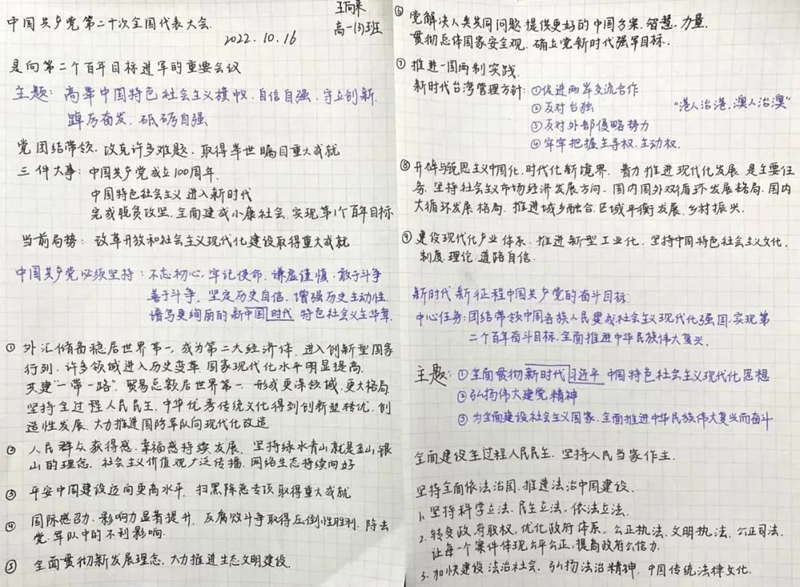 中国共产党第二十次全国代表大会
高一(3)班
2022.10.16
是向第二个百年目标进军的重要会议
主题：高举中国特色社会主义旗帜，自信自强，守正创新
踔厉奋发，砥砺自强
党团结带领，攻克许多难题，取得举世瞩目重大成就
三件大事：中国共产党成立100周年.
中国特色社会主义进入新时代
完成脱贫攻坚，全面建成小康社会，实现第1个百年目标
当前局势：改革开放和社会主义现代化建设取得重大成就
中国共产党必须坚持：不忘初心，牢记使命，谦虚谨慎，敢于斗争
善于斗争，坚定历史自信，增强历史主动性
谱写更绚丽的新中国时代特色社会主义华章.
① 外汇储备稳居世界第一，成为第二大经济体，进入创新型国家
行列，许多领域进入历史变革，国家现代化水平明显提高.
共建“一带一路”，贸易总额居世界第一，形成更深领域，更大格局
坚持全过程人民民主，中华优秀传统文化得到创新型转优，创
造性发展，大力推进国防军队向现代化改造
② 人民群众获得感，幸福感持续发展，坚持绿水青山就是金山银
山的理念，社会主义价值观广泛传播，网络生态持续向好
③ 平安中国建设迈向更高水平，扫黑除恶专项取得重大成就
④ 国际感召力，影响力显著提升，反腐败斗争取得压倒性胜利，除去
党，军队中的不利影响.
⑤ 全面贯彻新发展理念，大力推进生态文明建设
⑥ 党解决人类共同问题提供更好的中国方案，智慧，力量，
贯彻总体国家安全观，确立党新时代强军目标.
⑦ 推进一国两制实践.
新时代台湾管理方针：①促进两岸交流合作
②反对台独
“港人治港，澳人治澳”
③反对外部侵略势力
④牢牢把握主导权，主动权.
⑧ 开辟马克思主义中国化，时代化新境界，着力推进现代化发展，是主要任
务，坚持社会主义市场经济发展方向，国内国外双循环发展格局，国内
大循环发展格局，推进城乡融合，区域平衡发展，乡村振兴.
⑨ 建设现代化产业体系，推进新型工业化，坚持中国特色社会主义文化，
制度，理论，道路自信.
新时代新征程中国共产党的奋斗目标
中心任务：团结带领中国各族人民要成社会主义现代化强国，实现第
二个百年奋斗目标，全面推进中华民族伟大复兴.
主题：①全面贯彻新时代习近平中国特色社会主义现代化思想
②弘扬伟大建党精神
③为全面建设社会主义国家，全面推进中华民族伟大复兴而奋斗
全面建设全过程人民民主，坚持人民当家作主.
坚持全面依法治国，推进法治中国建设.
1. 坚持科学立法，民主立法，依法立法.
2. 转变政府职权，优化政府体系，公正执法，文明执法，公正司法.
让每个案件体现公平公正，提高政府公信力.
3. 加快建设法治社会，弘扬法治精神，中国传统法律文化.